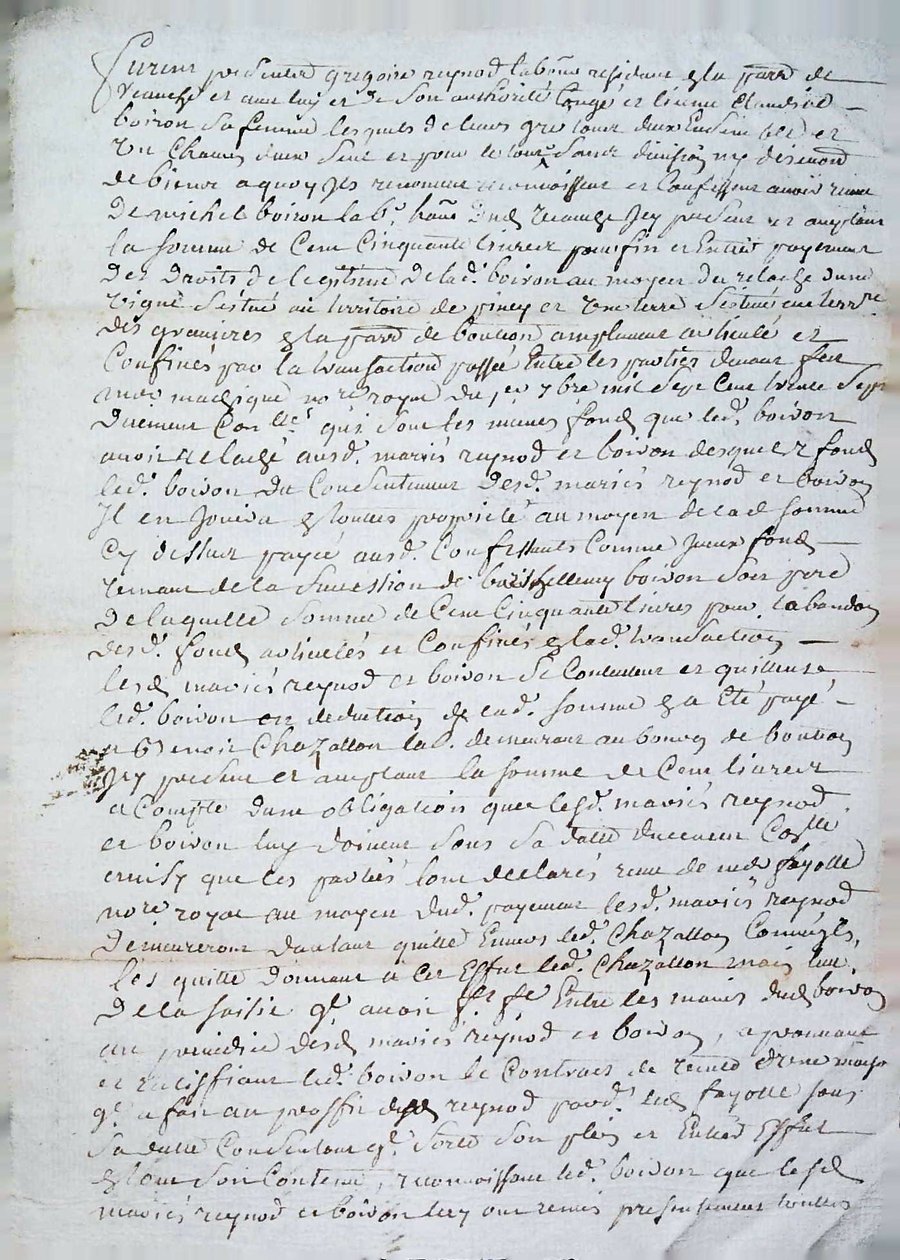 furent presents gregoire reynod lab. residant en la parr. de
Veauche et avec luy et de son authorité congé et licence claudine
boiron sa femme lesquels de leurs gre tous deux ensemble et
un chacun deux seul et pour le tout sans division ny discution
de biens a quoy ils renoncent reconnoissent et confessent avoir reeue
de michel boiron lab. hant dud. icy present et acceptant
la somme de Cent Cinquante livres pour fin et Entier payement
des Droits de legitime de lad. boiron au moyen du relache dune
vigne sestué au territoire de piney et une terre sestuée au terr.re
des granieres en la parr. de bouteon amplement articulé et
Confinés par la transaction passée Entre les parties devant
no.re royal du 1er 7bre mil sept Cent trente sept
Duement Con.llé qui sont les memes fonds que led. boiron
avoit relaché ausd. mariés reynod et boiron desquels fonds
led. boiron du Consentement desd. mariés reynod et boiron
Il en Jouira en toutes proprieté au moyen de lad. somme
cy dessus payée ausd. Confessants Comme Jceux fonds
venant de la succession de barthellemy boiron son pere
De laquelle somme de Cent Cinquante livres pour labandon
desd. fonds articulés et Confinés en lad. transaction
lesd. mariés reynod et boiron se Contentent et quittent
led. boiron en deduction de lad. somme en a été payé
a Benoit Chazallon lab. demeurant au bourg de bouteon
icy present et acceptant la somme de Cent livres
a Compte dune obligation que lesd. mariés reynod
et boiron luy doivent sous sa datte duement Con.llé
ainsy que les parties lont declarés reeue de me fayolle
no.re royal au moyen dud. payement lesd. mariés reynod
demeureront dautant quitte Envers led. Chazallon Comme
les quitte donnant a cet Effet led. Chazallon main levée
De la saisie q.l avoit f.t f.e Entre les mains dud. boiron
au prejudice desd. mariés reynod et boiron, approuvant
et ratiffiant led. boiron le Contract de vente dune maison
q.l a fait au proffit dud. reynod pard. led. fayolle sous
sa datte Consentant q.l sorte son plein et Entier Effet
en tout son Contenu, reconnoissant led. boiron que lesd.
mariés reynod et boiron luy ont remis presentement toutes